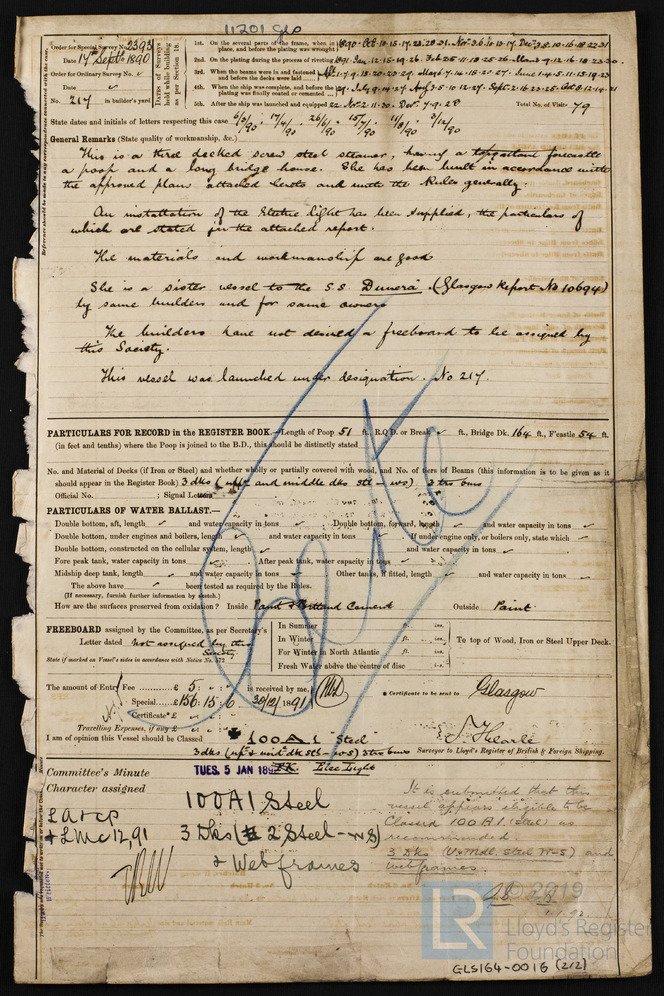 11201 gls
Order for Special Survey No. 2393
Date 17th Sept 1890
Order for Ordinary Survey No.
Date
No. 217 in builder's yard
Dates of Surveys held while building as per Section 18.
1st. On the several parts of the frame, when in place, and before the plating was wrought
2nd. On the plating during the process of riveting
3rd. When the beams were in and fastened, and before the decks were laid
4th. When the ship was complete, and before the plating was finally coated or cemented
5th. After the ship was launched and equipped 22. Nov 2.11.30. Dec 7.9.28 Total No. of Visits 79
State dates and initials of letters respecting this case
General Remarks (State quality of workmanship, &c.)
This is a three decked screw steel steamer, having a topgallant forecastle
a poop and a long bridge house. She has been built in accordance with
the approved plans attached hereto and with the Rules generally.
An installation of the Electric light has been supplied, the particulars of
which are stated in the attached report.
The materials and workmanship are good
She is a sister vessel to the S.S. Dunera (Glasgow Report No 10694)
by same builders and for same owners
The builders have not desired a freeboard to be assigned by
this Society.
This vessel was launched under designation. No 217.
PARTICULARS FOR RECORD in the REGISTER BOOK.—Length of Poop 51 ft., R.Q.D. or Break ft., Bridge Dk. 164 ft., F'castle 54 ft.
(in feet and tenths) where the Poop is joined to the B.D., this should be distinctly stated
No. and Material of Decks (if Iron or Steel) and whether wholly or partially covered with wood, and No. of tiers of Beams (this information is to be given as it
should appear in the Register Book) 3 dks (uppr and middle dks stl - ws) 3 trs bms
Official No. ; Signal Letters
PARTICULARS OF WATER BALLAST.—
Double bottom, aft, length and water capacity in tons Double bottom, forward, length and water capacity in tons
Double bottom, under engines and boilers, length and water capacity in tons If under engine only, or boilers only, state which
Double bottom, constructed on the cellular system, length and water capacity in tons
Fore peak tank, water capacity in tons After peak tank, water capacity in tons
Midship deep tank, length and water capacity in tons Other tanks, if fitted, length and water capacity in tons
The above have been tested as required by the Rules.
(If necessary, furnish further information by sketch.)
How are the surfaces preserved from oxidation? Inside Paint & Portland Cement Outside Paint
FREEBOARD assigned by the Committee, as per Secretary's
Letter dated not assigned by this Society
State if marked on Vessel's sides in accordance with Notice No. 572
In Summer ft. ins.
In Winter ft. ins.
For Winter in North Atlantic ft. ins.
Fresh Water above the centre of disc ins.
To top of Wood, Iron or Steel Upper Deck.
The amount of Entry Fee £ 5 : is received by me,
Special £ 156 : 15 : 6 30/12/1891
Certificate £
Travelling Expenses, if any £
Certificate to be sent to Glasgow
I am of opinion this Vessel should be Classed 100A1 Steel
3 dks (upr & mid dk stl - ws) 3 trs bms
Surveyor to Lloyd's Register of British & Foreign Shipping.
Committee's Minute TUES. 5 JAN 189 Elec Light
Character assigned
100A1 Steel
LA&CP
+LMC 12,91
3 Dks (2 Steel - WS)
& Web frames
It is submitted that this
vessel appears eligible to be
Classed 100A1 (Steel) as
recommended.
3 Dks (U & Mdl. Steel W-S) and
webframes.
Date
© 2019
LR
Lloyd's Register
Foundation
GLS164-0016 (2/2)